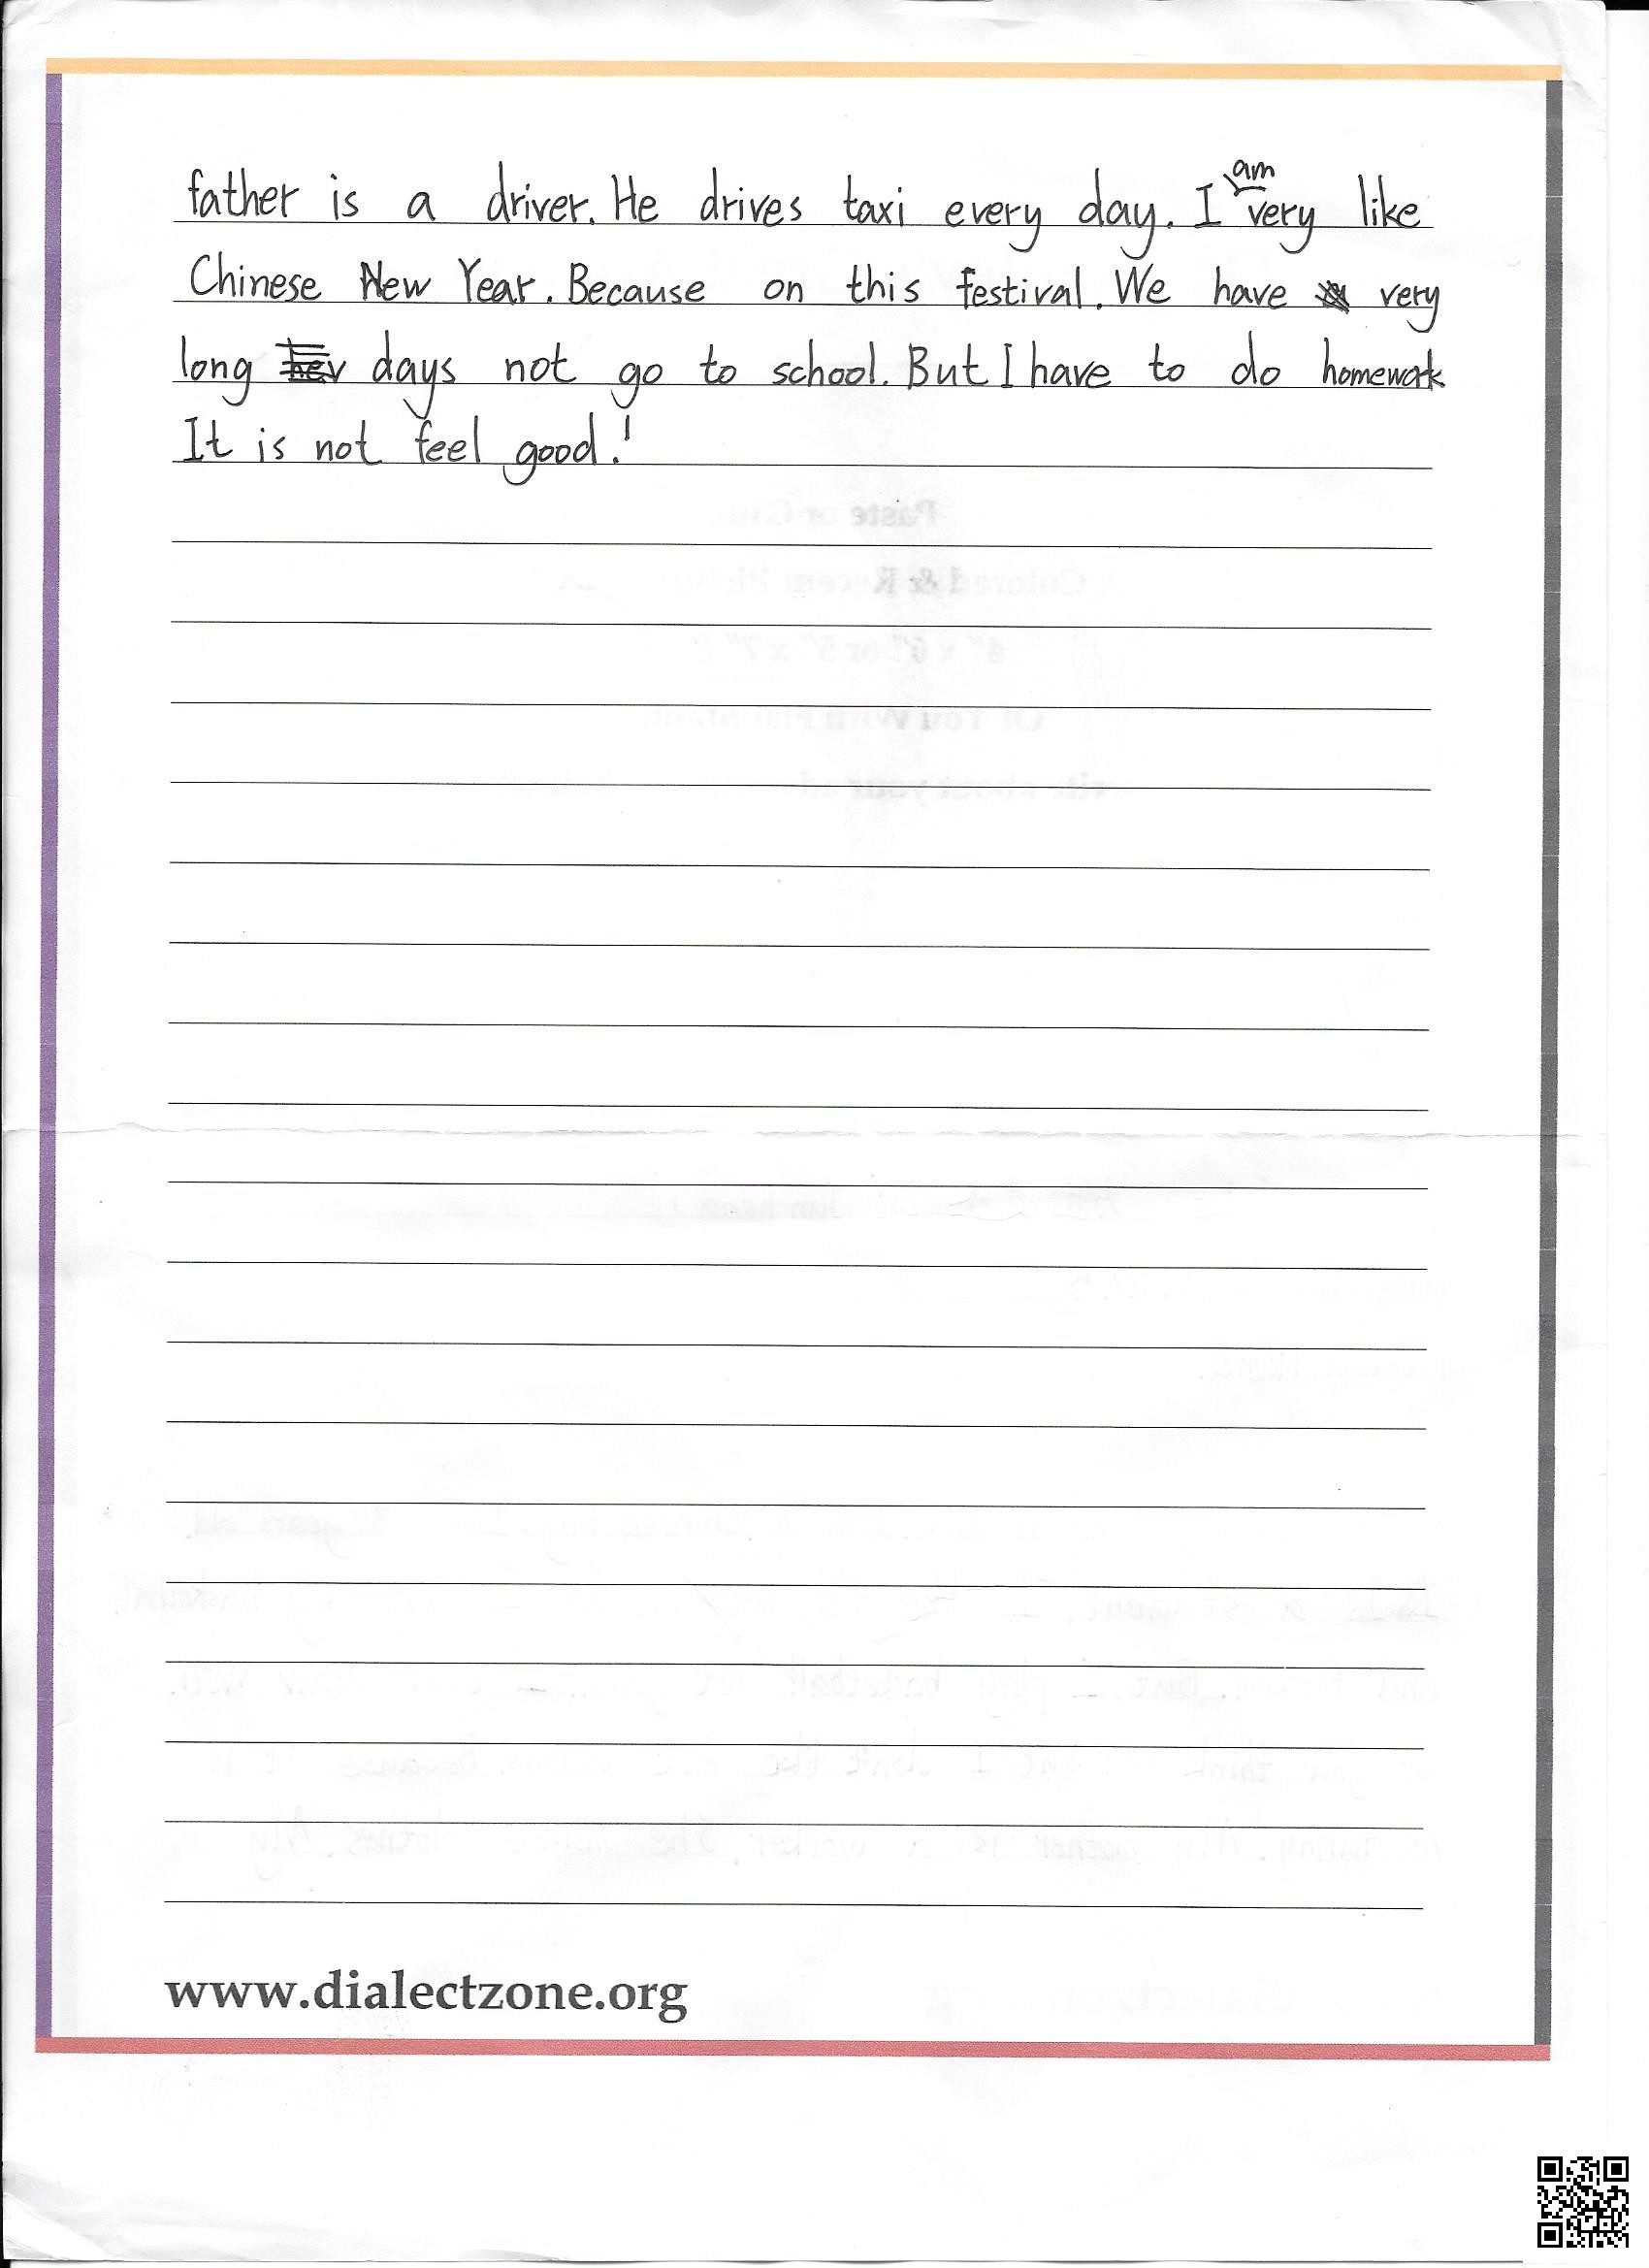 father is a driver. He drives taxi every day. I am very like
Chinese New Year. Because on this festival. We have very
long days not go to school. But I have to do homework
It is not feel good!
www.dialectzone.org